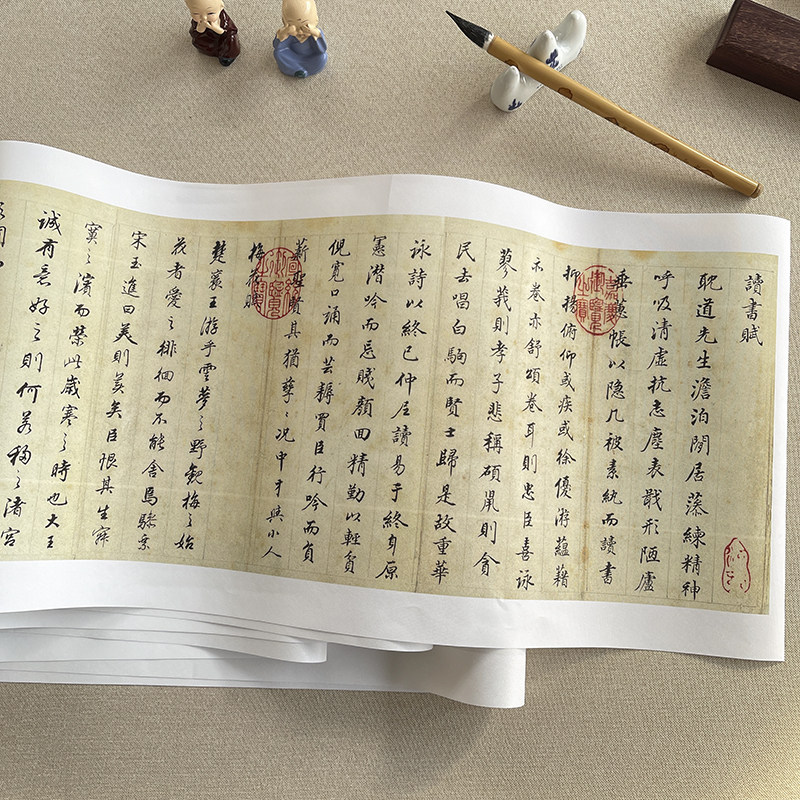 讀書賦
耽道先生澹泊閒居藻練精神
呼吸清虛抗志塵表戢形陋廬
垂蕙帳以隱几被素紈而讀書
抑揚俯仰或疾或徐優游蘊藉
亦卷亦舒頌卷耳則忠臣喜詠
蓼莪則孝子悲稱碩鼠則貪
民去唱白駒而賢士歸是故重華
詠詩以終已仲尼讀易于終身原
憲潛吟而忘賤顏回精勤以輕貧
倪寬口誦而芸耨買臣行吟而負
薪聖賢其猶孳〻况中才與小人
梅花賦
楚襄王游乎雲夢之野觀梅之始
花者愛之徘徊而不能舍焉驂乘
宋玉進曰美則美矣臣恨其生寂
寞之濱而榮此歲寒之時也大王
誠有意好之則何若移之渚宮